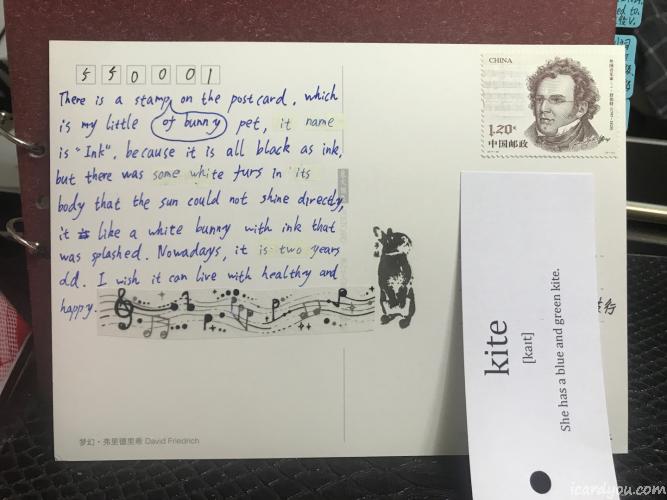 550001
There is a stamp of bunny on the postcard, which
is my little pet, it name
is "Ink", because it is all black as ink,
but there was some white furs in its
body that the sun could not shine directly,
it like a white bunny with ink that
was splashed. Nowadays, it is two years
old. I wish it can live with healthy and
happy.
CHINA
1.20元
中国邮政
kite
[kaɪt]
She has a blue and green kite.
梦幻·弗里德里希 David Friedrich
icardyou.com